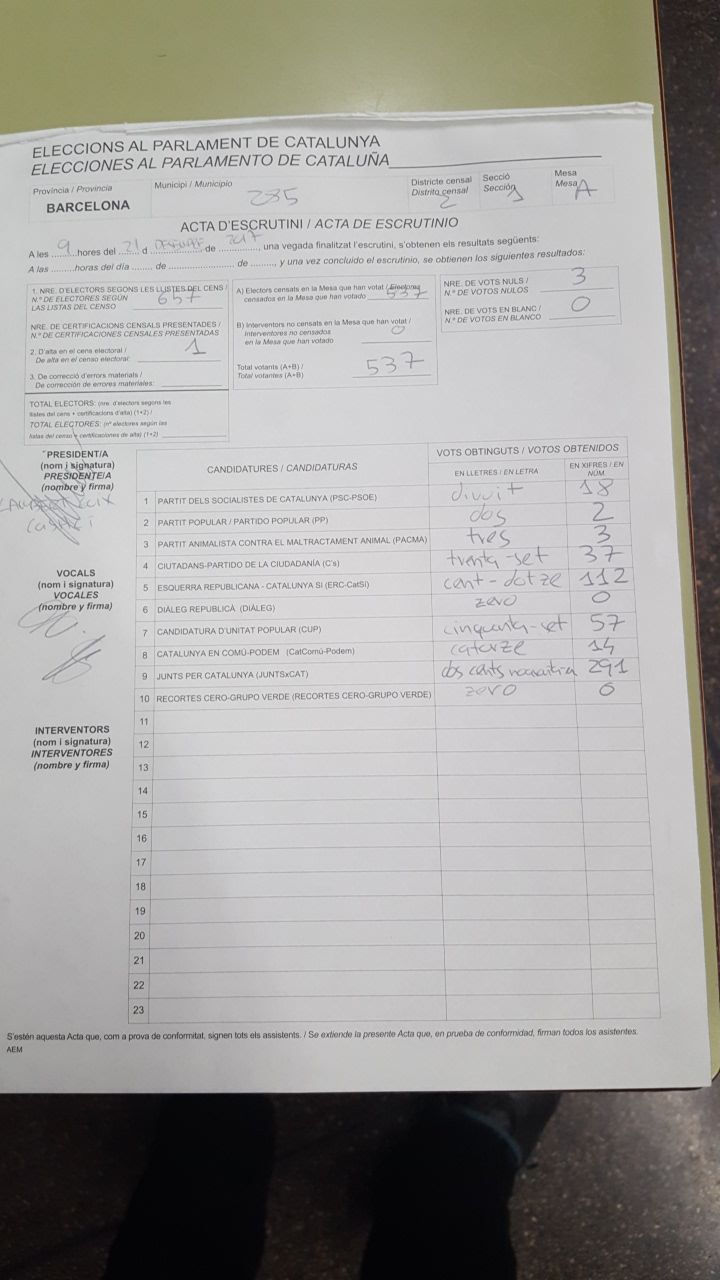 ELECCIONS AL PARLAMENT DE CATALUNYA
ELECCIONES AL PARLAMENTO DE CATALUÑA
Província / Provincia
BARCELONA
Municipi / Municipio
285
Districte censal
Distrito censal
2
Secció
Sección
1
Mesa
Mesa
A
ACTA D'ESCRUTINI / ACTA DE ESCRUTINIO
A les 9 hores del 21 d de 2017, una vegada finalitzat l'escrutini, s'obtenen els resultats següents:
A las ........horas del día ....... de ..................., de ........, y una vez concluido el escrutinio, se obtienen los siguientes resultados:
1. NRE. D'ELECTORS SEGONS LES LLISTES DEL CENS /
N.º DE ELECTORES SEGÚN
LAS LISTAS DEL CENSO
657
NRE. DE CERTIFICACIONS CENSALS PRESENTADES /
N.º DE CERTIFICACIONES CENSALES PRESENTADAS
2. D'alta en el cens electoral /
De alta en el censo electoral:
1
3. De correcció d'errors materials /
De corrección de errores materiales:
TOTAL ELECTORS: (nre. d'electors segons les
llistes del cens + certificacions d'alta) (1+2) /
TOTAL ELECTORES: (nº electores según las
listas del censo + certificaciones de alta) (1+2)
A) Electors censats en la Mesa que han votat / Electores
censados en la Mesa que han votado 537
B) Interventors no censats en la Mesa que han votat /
Interventores no censados
en la Mesa que han votado
0
Total votants (A+B) /
Total votantes (A+B)
537
NRE. DE VOTS NULS /
N.º DE VOTOS NULOS
3
NRE. DE VOTS EN BLANC /
N.º DE VOTOS EN BLANCO
0
PRESIDENT/A
(nom i signatura)
PRESIDENTE/A
(nombre y firma)
VOCALS
(nom i signatura)
VOCALES
(nombre y firma)
INTERVENTORS
(nom i signatura)
INTERVENTORES
(nombre y firma)
CANDIDATURES / CANDIDATURAS
VOTS OBTINGUTS / VOTOS OBTENIDOS
EN LLETRES / EN LETRA
EN XIFRES / EN NÚM.
1 PARTIT DELS SOCIALISTES DE CATALUNYA (PSC-PSOE) divuit 18
2 PARTIT POPULAR / PARTIDO POPULAR (PP) dos 2
3 PARTIT ANIMALISTA CONTRA EL MALTRACTAMENT ANIMAL (PACMA) tres 3
4 CIUTADANS-PARTIDO DE LA CIUDADANÍA (C's) trenta-set 37
5 ESQUERRA REPUBLICANA - CATALUNYA SÍ (ERC-CatSí) cent-dotze 112
6 DIÀLEG REPUBLICÀ (DIÀLEG) zero 0
7 CANDIDATURA D'UNITAT POPULAR (CUP) cinquanta-set 57
8 CATALUNYA EN COMÚ-PODEM (CatComú-Podem) catorze 14
9 JUNTS PER CATALUNYA (JUNTSxCAT) dos cents 291
10 RECORTES CERO-GRUPO VERDE (RECORTES CERO-GRUPO VERDE) zero 0
11
12
13
14
15
16
17
18
19
20
21
22
23
S'estén aquesta Acta que, com a prova de conformitat, signen tots els assistents. / Se extiende la presente Acta que, en prueba de conformidad, firman todos los asistentes.
AEM